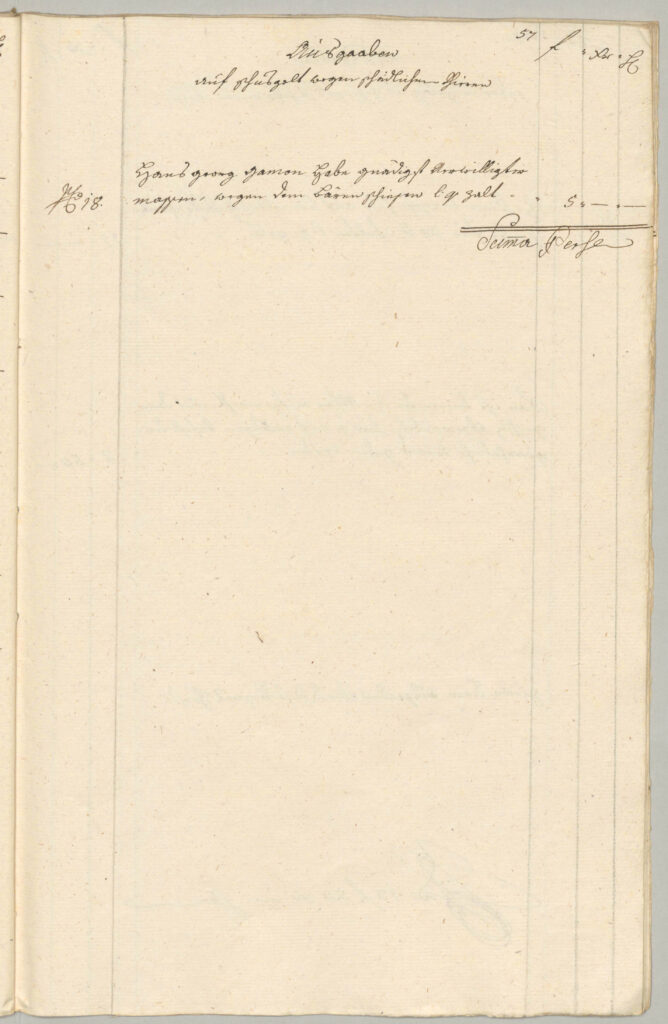 57
f xr H
Ausgaaben
auf schusgelt wegen schedlichen Thieren
Hans georg gamon Habe gnädigst Verwilligter
No 18. massen, wegen dem bären schiesen bezalt 5 — —
Suma Per se